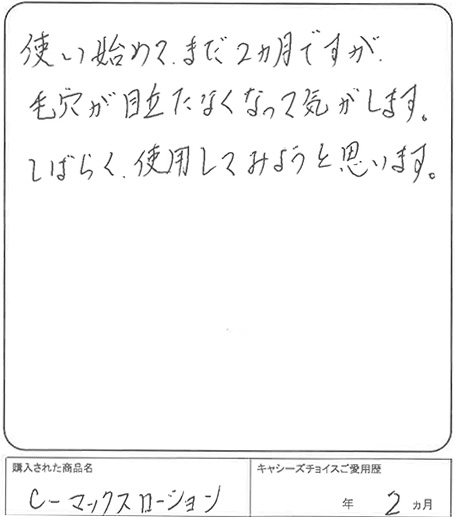 使い始めて、まだ2カ月ですが、
毛穴が目立たなくなって気がします。
しばらく、使用してみようと思います。
購入された商品名
キャシーズチョイスご愛用歴
C-マックスローション
年 2 カ月